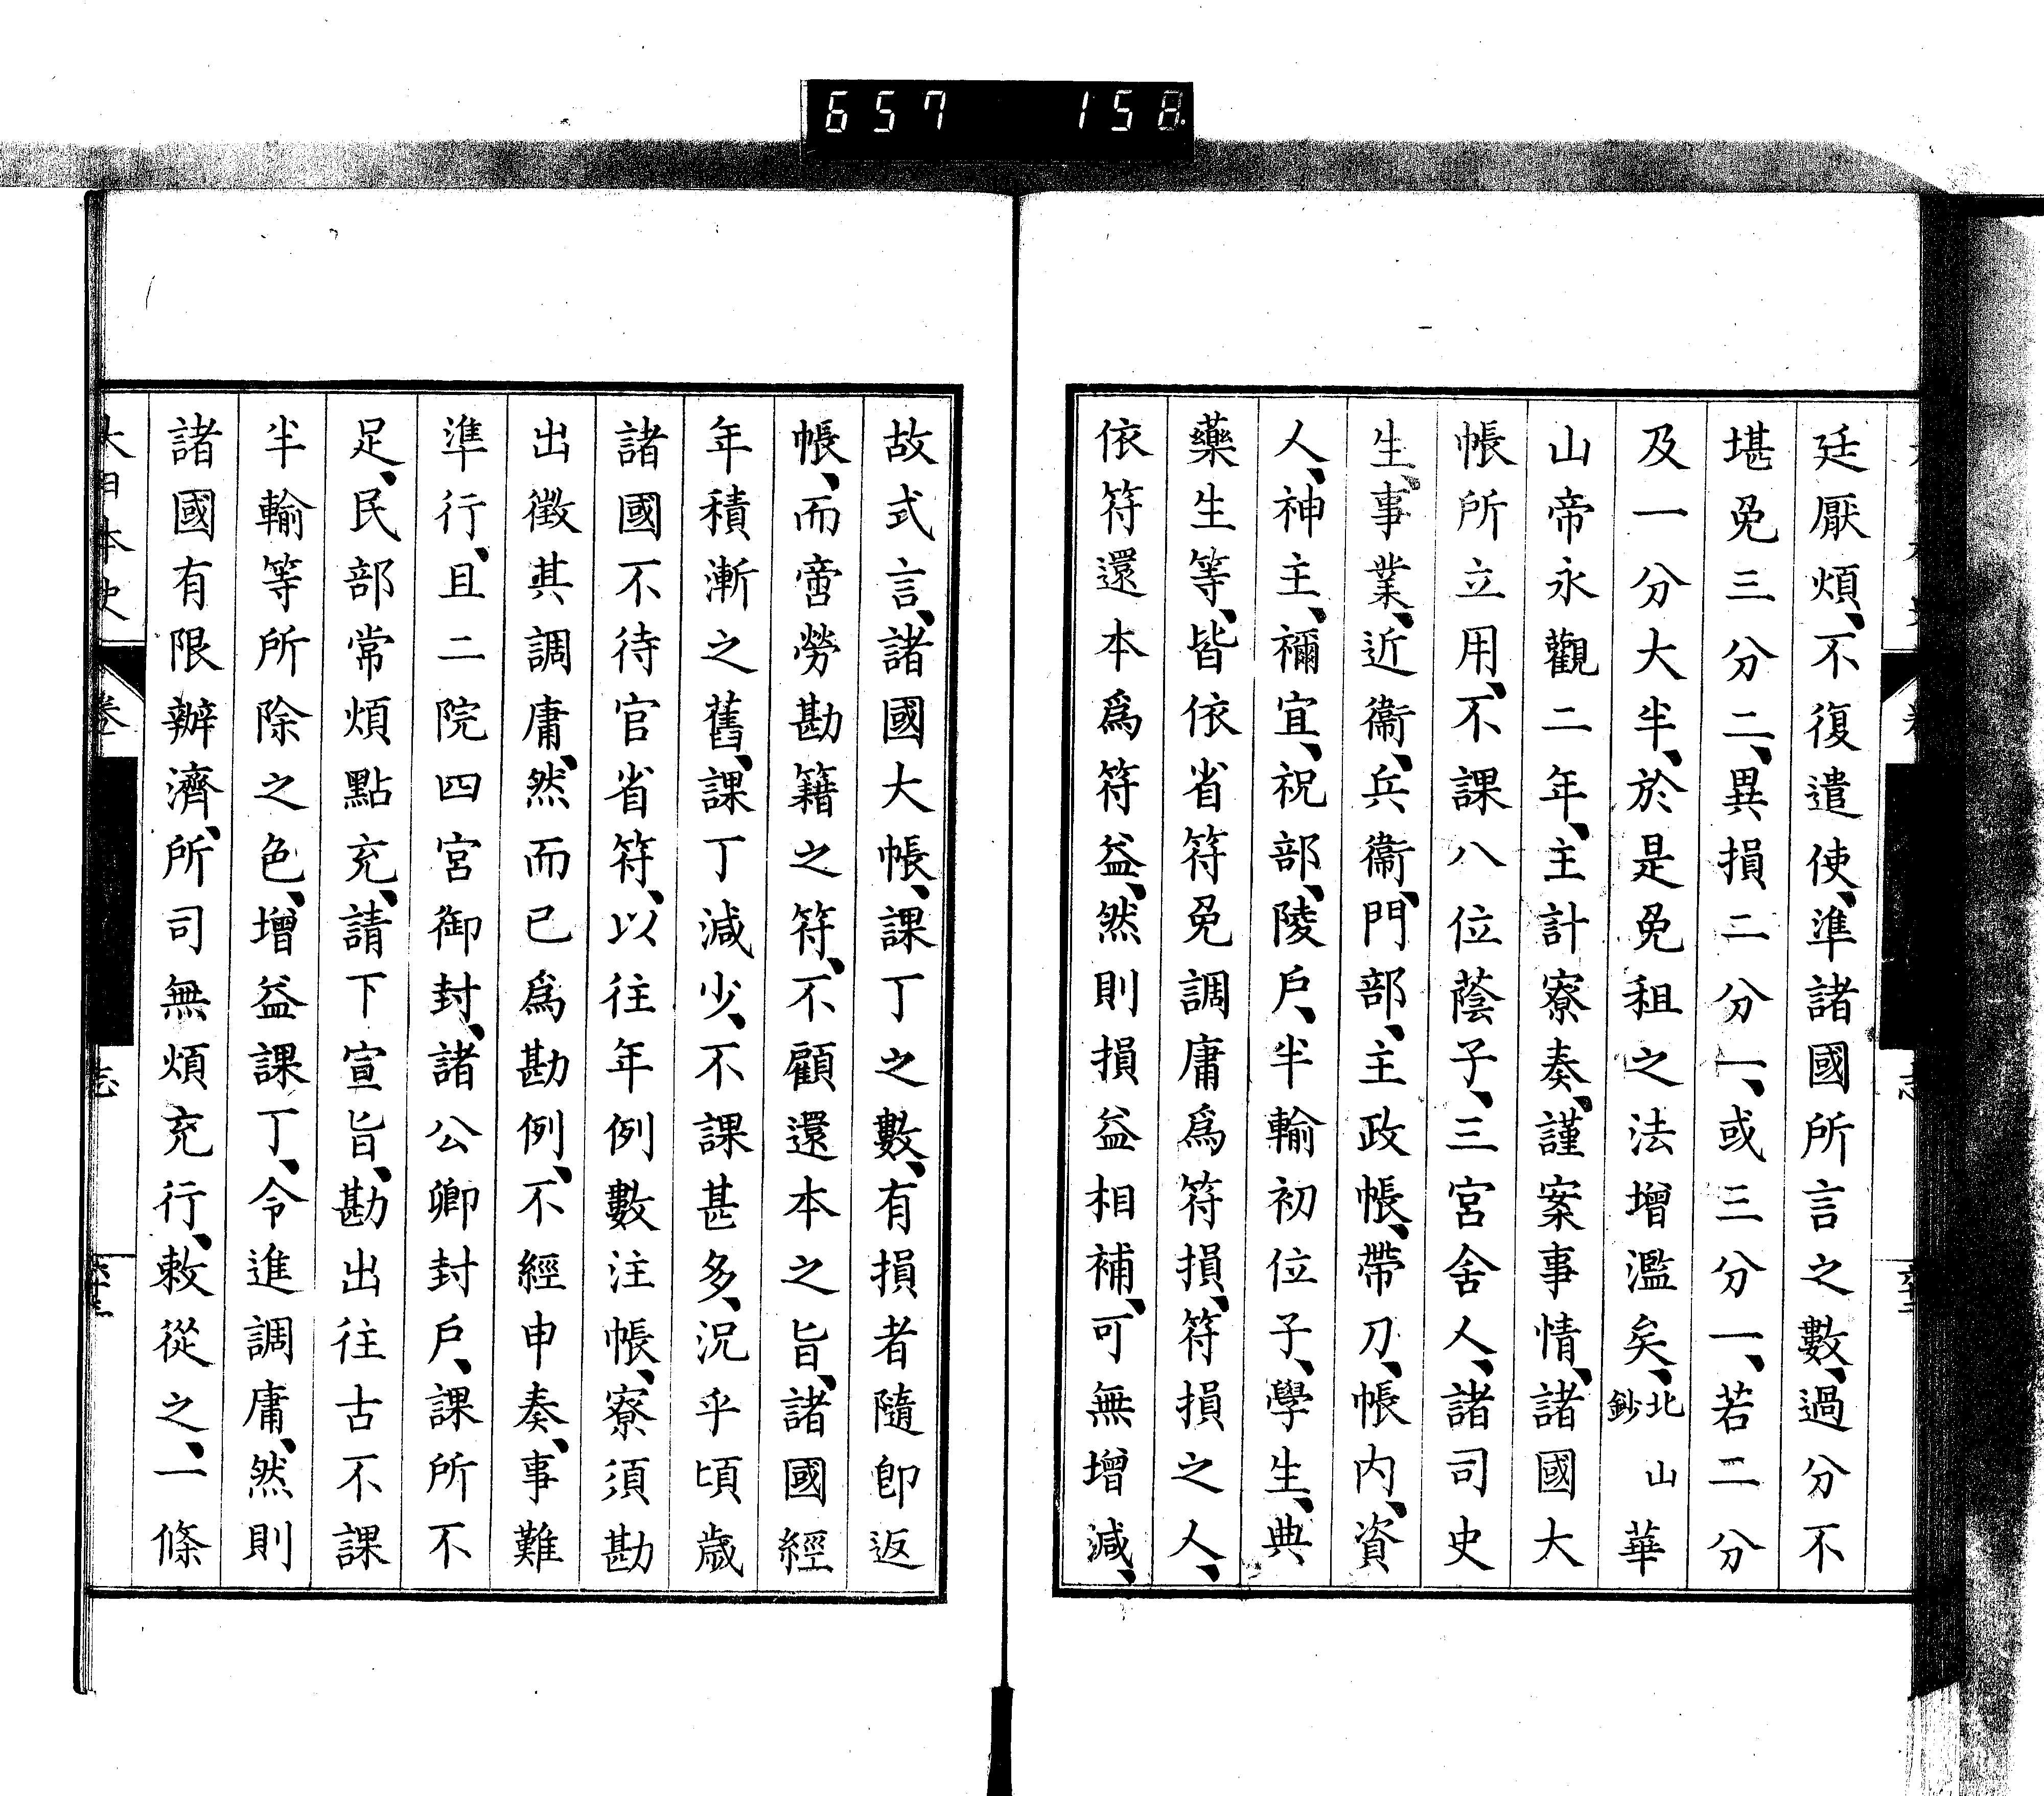 657 158
廷厭煩、不復遣使、準諸國所言之數、過分不
堪免三分二、異損二分一、或三分一、若二分
及一分大半、於是免租之法增濫矣、北山鈔
華
山帝永觀二年、主計寮奏、謹案事情、諸國大
帳所立用、不課八位蔭子、三宮舍人、諸司史
生、事業、近衞、兵衞、門部、主政帳、帶刀、帳内、資
人、神主、禰宜、祝部、陵戶、半輸初位子、學生、典
藥生等、皆依省符免調庸爲符損、符損之人、
依符還本爲符益、然則損益相補、可無增減、
故式言、諸國大帳、課丁之數、有損者隨卽返
帳、而啻勞勘籍之符、不顧還本之旨、諸國經
年積漸之舊、課丁減少、不課甚多、況乎頃歲
諸國不待官省符、以往年例數注帳、寮須勘
出徵其調庸、然而已爲勘例、不經申奏、事難
準行、且二院四宮御封、諸公卿封戶、課所不
足、民部常煩點充、請下宣旨、勘出往古不課
半輸等所除之色、增益課丁、令進調庸、然則
諸國有限辦濟、所司無煩充行、敕從之、一條
大日本史 卷 志